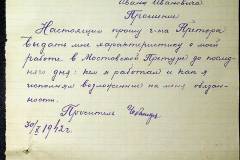 Ивана Ивановича
Прошение
Настоящим прошу г-на Претора
выдать мне характеристику о моей
работе в Мостовской Претуре до послед-
него дня: кем я работал и как я
исполнял возложенные на меня обязан-
ности.
Проситель
30/X 1942 г.